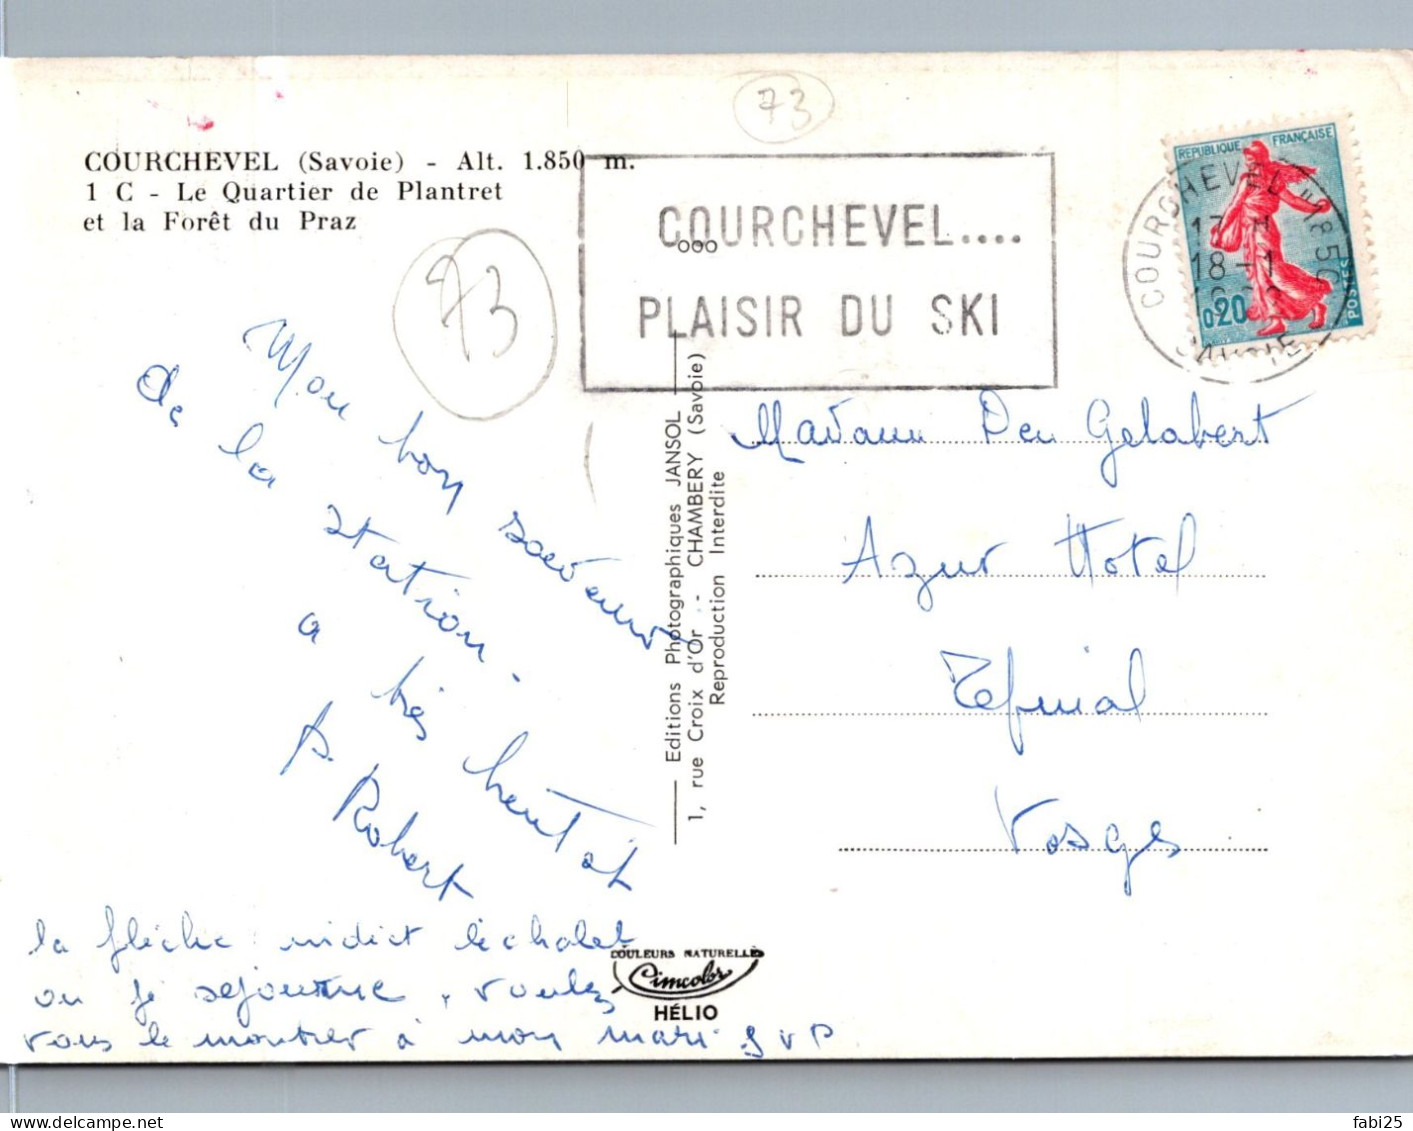 73
COURCHEVEL (Savoie) - Alt. 1.850 m.
1 C - Le Quartier de Plantret
et la Forêt du Praz
73
COURCHEVEL....
PLAISIR DU SKI
REPUBLIQUE FRANÇAISE
0,20
POSTES
COURCHEVEL "1850
17 H
18 - 1
SAVOIE
Mon bon souvenir
de la station.
a très bientôt
Robert
la flèche indict le chalet
ou je séjourne, voulez
vous le montrer à mon mari S V P
Editions Photographiques JANSOL
1, rue Croix d'Or - CHAMBERY (Savoie)
Reproduction Interdite
Madame Gelabert
Azur Hotel
Vosges
COULEURS NATURELLES
Cimcolor
HÉLIO
fabi25